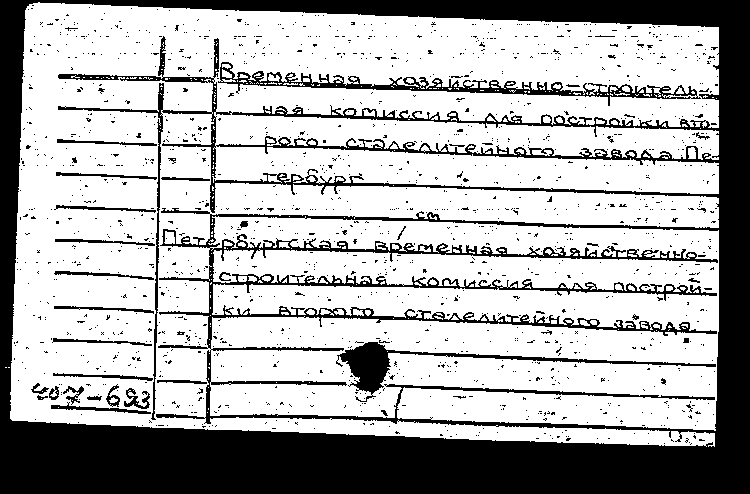 Временная хозяйственно-строитель-
ная комиссия для постройки вто-
рого сталелитейного завода. Пе-
тербург
см
Петербургская временная хозяйственно-
строительная комиссия для построй-
ки второго сталелитейного завода
407-693